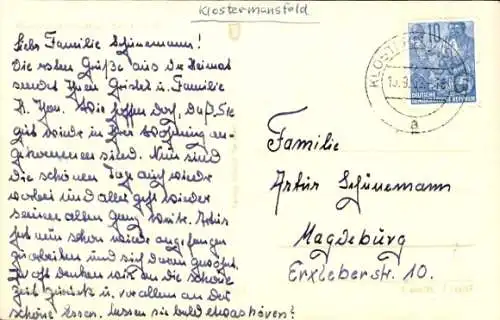 Klostermansfeld
Liebe Familie Schünemann!
Die ersten Grüße aus der Heimat
sendet Ihnen Gristel u. Familie
K. Wie hoffen doch, daß Sie
gut wieder in Ihrer Wohnung an-
gekommen sind. Nun sind
die schönen Tage auch wieder
vorbei und alles geht wieder
seinen alten Gang weiter. Artur
hat nun schon wieder angefangen
zu arbeiten und sich daran gewöhnt.
So oft denken wir an die schöne
Zeit zurück u. vor allem an das
schöne Essen. Lassen Sie bald etwas hören!
10
DEUTSCHE
REPUBLIK
a
Familie
Artur Schünemann
Magdeburg
Erxleberstr. 10.